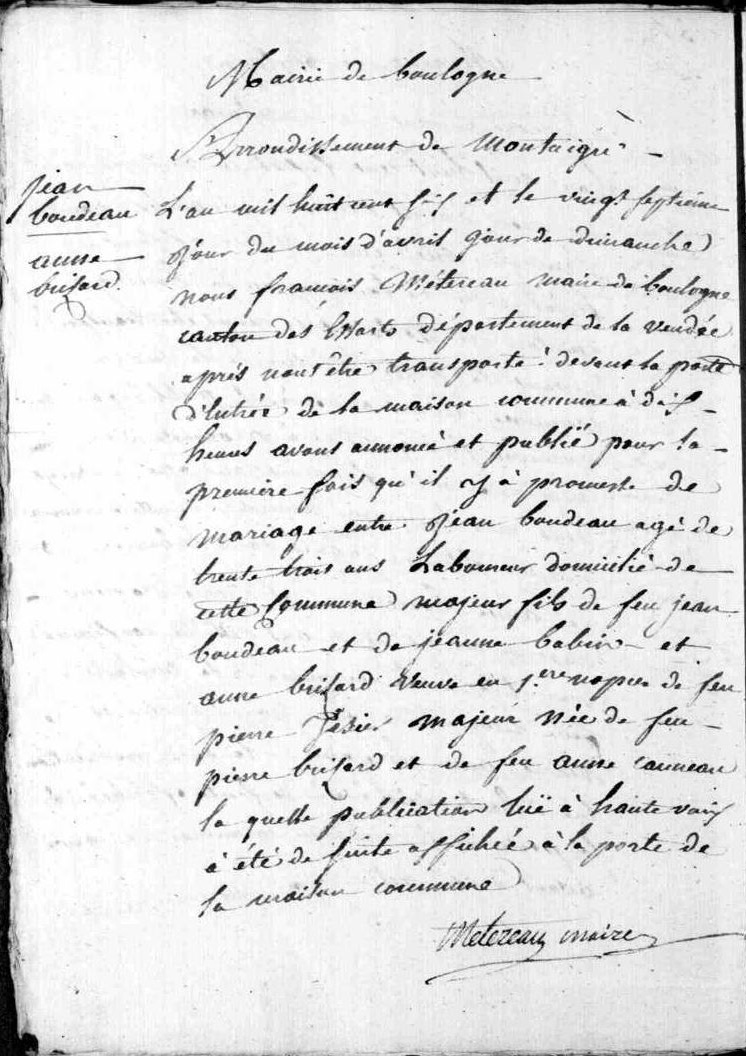 Mairie de boulogne
Arrondissement de Montaigu
jean
boudeau
anne
brisard
L'an mil huit cent six et le vingt septieme
jour du mois d'avril jour de dimanche
nous françois Métereau maire de boulogne
canton des Essarts département de la vendée
après nous être transporté devant la porte
d'entrée de la maison commune à dix
heures avons annoncé et publié pour la
première fois qu'il y à promesse de
mariage entre jean boudeau agé de
trente trois ans Laboureur domicilié de
cette Commune majeur fils de feu jean
boudeau et de jeanne babin et
anne brisard veuve en 1.ere nopce de feu
pierre majeur née de feu
pierre brisard et de feu anne
la quelle publication luë à haute voix
à été de suite affichée à la porte de
la maison commune
Metereau maire